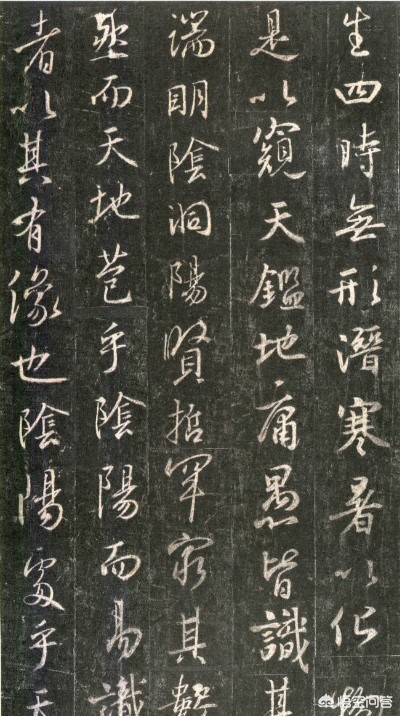 生四時無形潛寒暑以化物
是以窺天鑑地庸愚皆識其
端明陰洞陽賢哲罕窮其數
然而天地苞乎陰陽而易識
者以其有像也陰陽處乎天
悟空问答